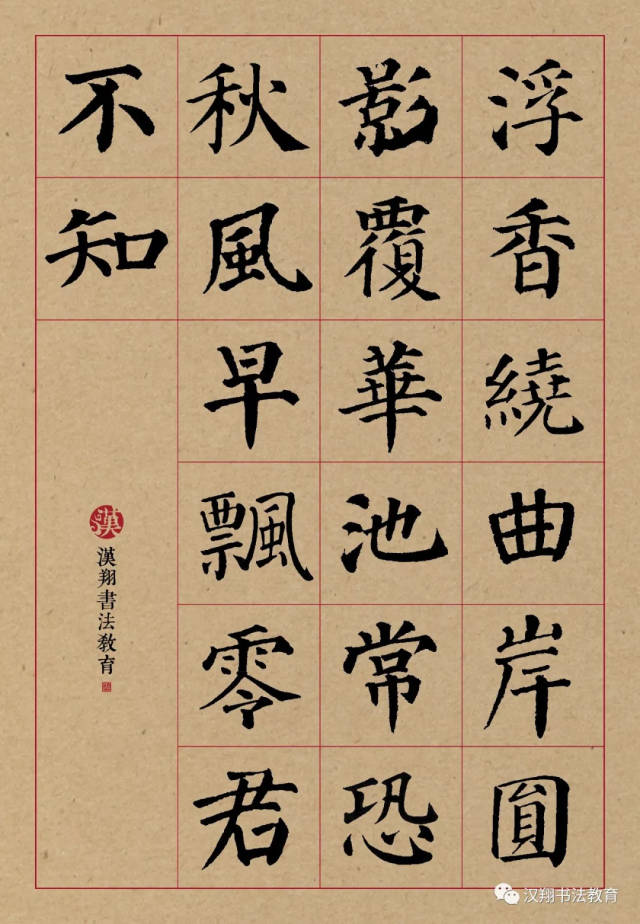 浮香繞曲岸圓
影覆華池常恐
秋風早飄零君
不知
漢
漢翔書法教育
汉翔书法教育